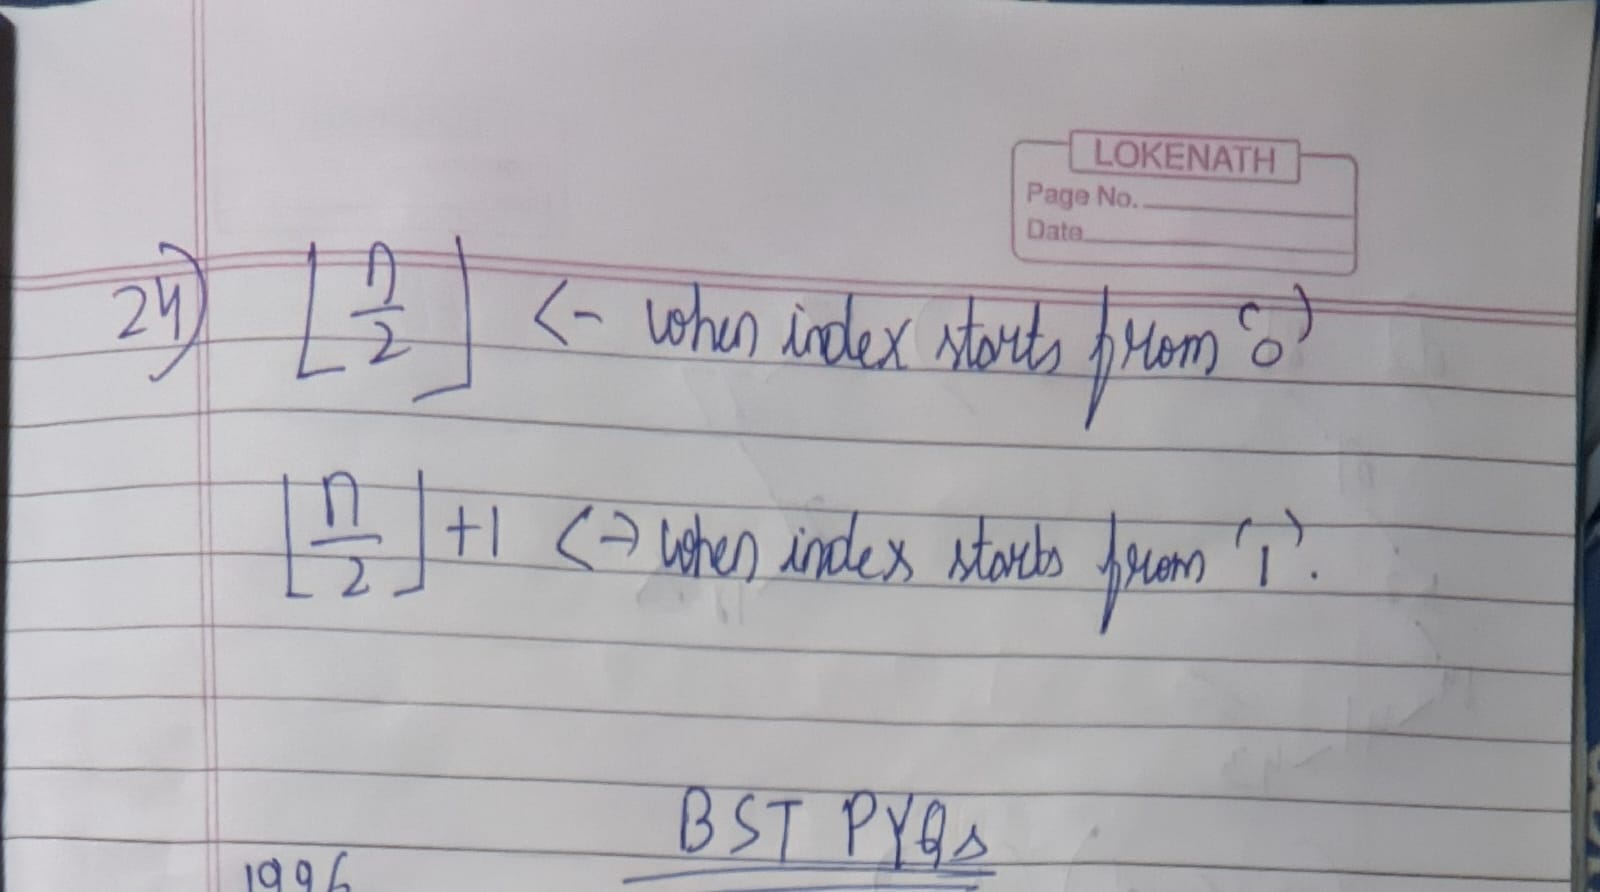 LOKENATH
Page No.
Date
24) ⌊n/2⌋ <- when index starts from '0'
⌊n/2⌋+1 <-> when index starts from '1'.
BST PYQs
1996